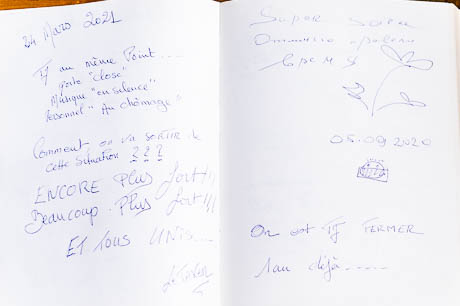 24 Mars 2021
TJ au même Point.....
Porte "close"
Musique "en silence"
Personnel "Au chômage"
Comment on va sortir de
cette situation ???
ENCORE Plus fort!!!
Beaucoup Plus fort!!!
ET TOUS UNIS....
Super soirée
Отлично провели
время
05.09.2020
On est TJ FERMER
1an déjà.....